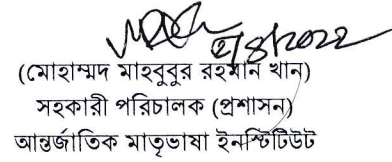 ২/৪/২০২২
(মোহাম্মদ মাহবুবুর রহমান খান)
সহকারী পরিচালক (প্রশাসন)
আন্তর্জাতিক মাতৃভাষা ইনস্টিটিউট